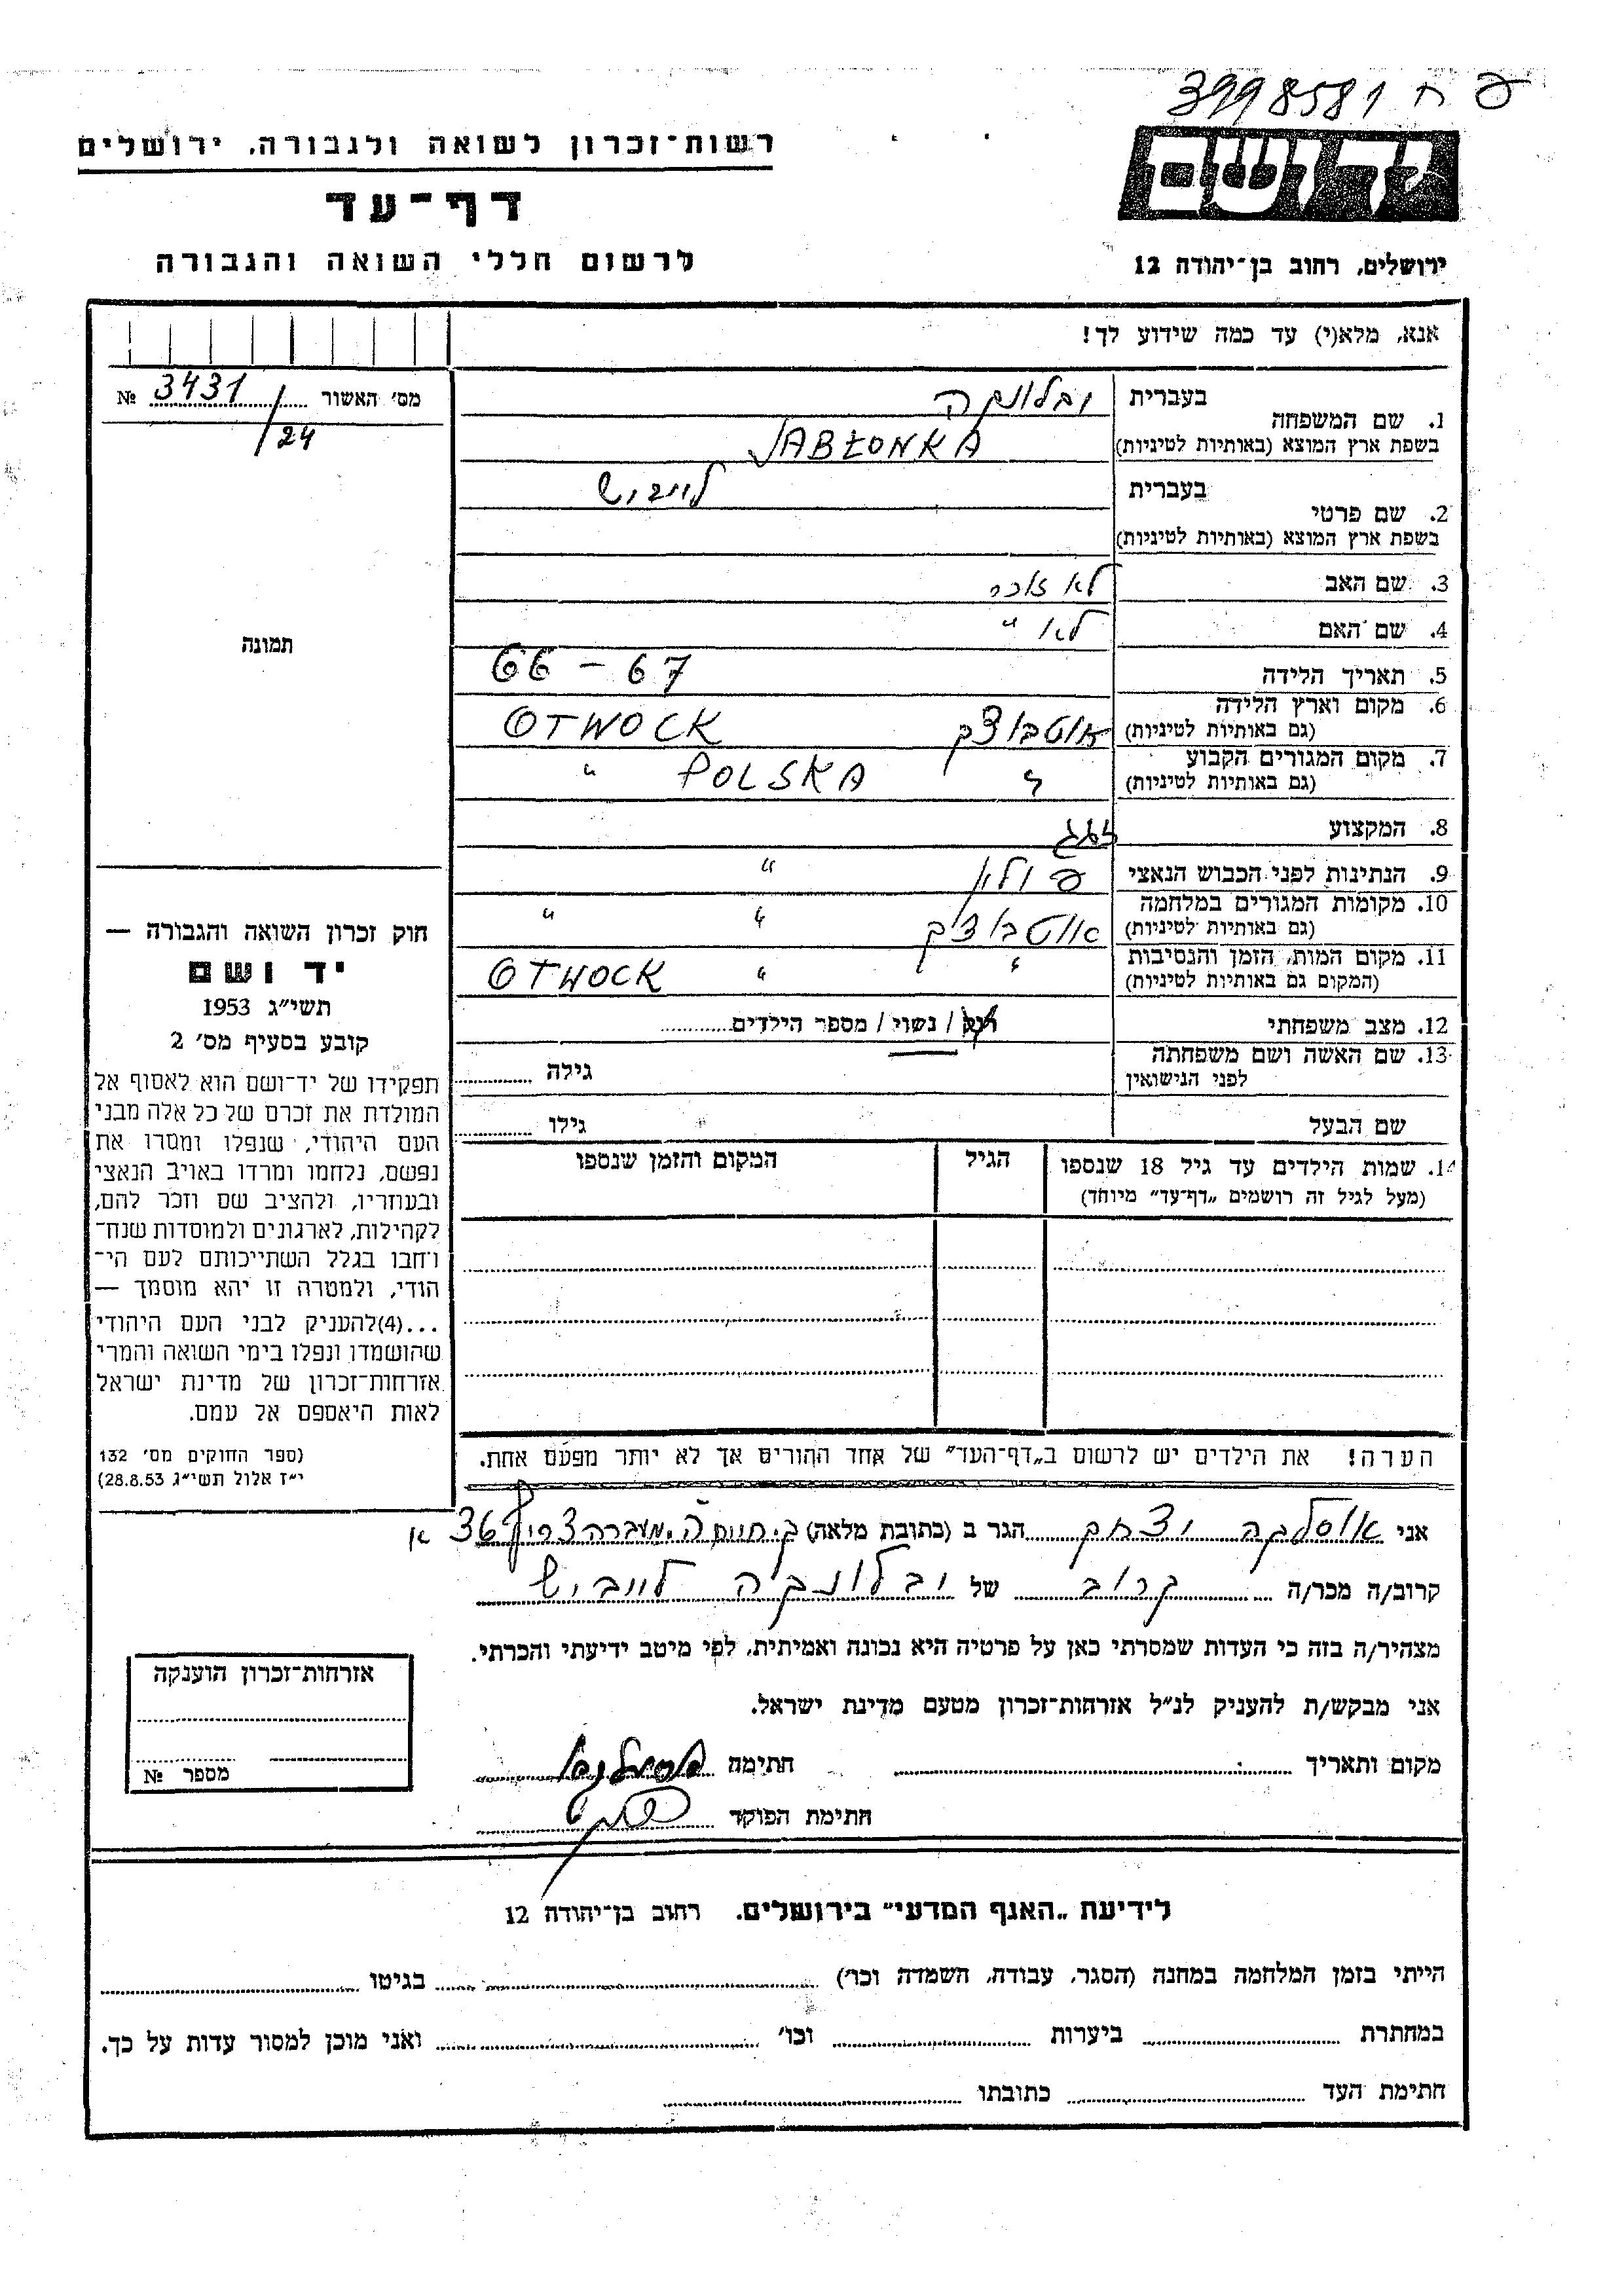 פ ח 3998581
יד ושם
ירושלים, רחוב בן־יהודה 12
רשות־זכרון לשואה ולגבורה, ירושלים
דף־עד
לרשום חללי השואה והגבורה
אנא, מלא(י) עד כמה שידוע לך!
מס׳ האשור № 3431
/24
תמונה
1. שם המשפחה
בעברית יבלונקה
בשפת ארץ המוצא (באותיות לטיניות) JABŁONKA
2. שם פרטי
בעברית לייביש
בשפת ארץ המוצא (באותיות לטיניות)
3. שם האב לא זוכר
4. שם האם לא "
5. תאריך הלידה 66 – 67
6. מקום וארץ הלידה
(גם באותיות לטיניות) אוטבוצק OTWOCK
7. מקום המגורים הקבוע
(גם באותיות לטיניות) POLSKA "
8. המקצוע זגג
9. הנתינות לפני הכבוש הנאצי פולין "
10. מקומות המגורים במלחמה
(גם באותיות לטיניות) אוטבוציק " "
11. מקום המות, הזמן והנסיבות
(המקום גם באותיות לטיניות) " " OTWOCK
12. מצב משפחתי רוק / נשוי / מספר הילדים
13. שם האשה ושם משפחתה
לפני הנישואין גילה
שם הבעל גילו
14. שמות הילדים עד גיל 18 שנספו
(מעל לגיל זה רושמים „דף־עד״ מיוחד)
הגיל
המקום והזמן שנספו
הערה! את הילדים יש לרשום ב„דף־העד״ של אחד ההורים אך לא יותר מפעם אחת.
חוק זכרון השואה והגבורה —
יד ושם
תשי״ג 1953
קובע בסעיף מס׳ 2
תפקידו של יד־ושם הוא לאסוף אל
המולדת את זכרם של כל אלה מבני
העם היהודי, שנפלו ומסרו את
נפשם, נלחמו ומרדו באויב הנאצי
ובעוזריו, ולהציב שם וזכר להם,
לקהילות, לארגונים ולמוסדות שנח־
רחבו בגלל השתייכותם לעם הי־
הודי, ולמטרה זו יהא מוסמך —
...(4)להעניק לבני העם היהודי
שהושמדו ונפלו בימי השואה והמרי
אזרחות־זכרון של מדינת ישראל
לאות היאספם אל עמם.
(ספר החוקים מס׳ 132
י״ז אלול תשי״ג 28.8.53)
אני יצחק הגר ב (כתובת מלאה) מעברה צריף 36 א
קרוב/ה מכר/ה קרוב של יבלונקה לייביש
מצהיר/ה בזה כי העדות שמסרתי כאן על פרטיה היא נכונה ואמיתית, לפי מיטב ידיעתי והכרתי.
אני מבקש/ת להעניק לנ״ל אזרחות־זכרון מטעם מדינת ישראל.
מקום ותאריך חתימה
חתימת הפוקד
אזרחות־זכרון הוענקה
מספר №
לידיעת „האגף המדעי״ בירושלים, רחוב בן־יהודה 12
הייתי בזמן המלחמה במחנה (הסגר, עבודה, השמדה וכו׳) בגיטו
במחתרת ביערות וכו׳ ואני מוכן למסור עדות על כך.
חתימת העד כתובתו